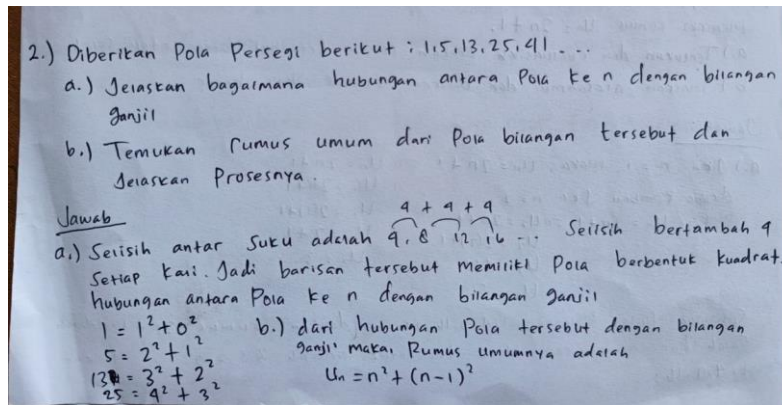 2.) Diberikan Pola Persegi berikut : 1,5,13,25,41 ...
a.) Jelaskan bagaimana hubungan antara Pola ke n dengan bilangan
ganjil
b.) Temukan rumus umum dari Pola bilangan tersebut dan
Jelaskan Prosesnya.
Jawab
4 + 4 + 4
a.) Selisih antar Suku adalah 4, 8 12 16 ... Selisih bertambah 4
Setiap kali. Jadi barisan tersebut memiliki Pola berbentuk kuadrat.
hubungan antara Pola ke n dengan bilangan ganjil
1 = 1² + 0²
5 = 2² + 1²
13 = 3² + 2²
25 = 4² + 3²
b.) dari hubungan Pola tersebut dengan bilangan
ganjil maka, Rumus umumnya adalah
Un = n² + (n-1)²